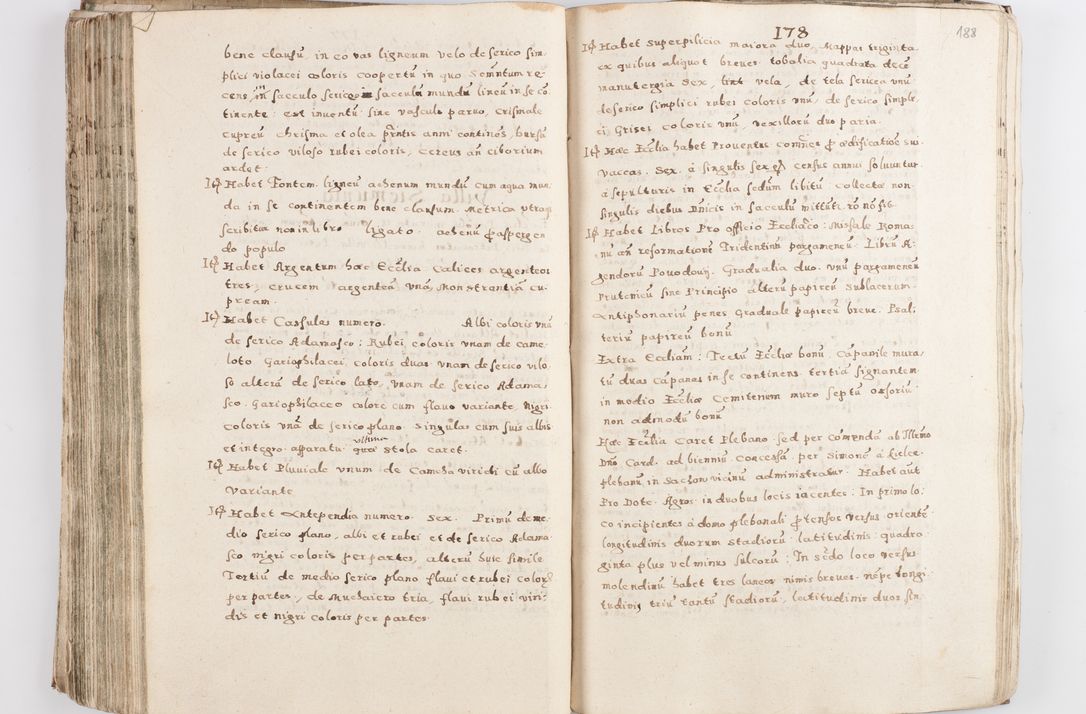 bene clausũ, in eo vas ligneum velo de serico sim
plici violacei coloris coopertũ in quo Scmñtum re
cens, in sacculo serico saccula mundũ lineũ in se cõ
tinente: est inuentũ: sine vasculo paruo, Crismale
Cupreũ Chrisma et olea pñtis anni continẽs, bursũ
de serico viloso rubei coloris, Cereus añ ciborium
ardet.
It Habet Fontem ligneũ aehenum mundũ cum aqua mun
da in se continentem bene clausum. Metrica utraq
scribitur non in libro ligato. aehenũ p aspergen
do populo
It Habet Argentum haec Ecclia Calices argenteos
tres, crucem argenteã vnã, Monstrantiã cu
pream.
It Habet Cassulas numero. Albi coloris vnã
de serico Adamasco: Rubei coloris vnam de came
loto. Gariophilacei coloris duas vnam de serico vilo
so alterũ de serico lato, vnam de serico Adama
sco. Gariophilaceo colore cum flauo variante, Nigri
Coloris vnã de serico plano. Singulas cum suis albis
et integro apparatu. vltima stola caret.
It Habet Pluuiale vnum de Camcha viridi cũ albo
Variante
It Habet Antependia numero Sex. Primũ de me
dio serico plano, albi et rubei et de serico Adama
sco nigri coloris per partes, alterũ huic simile
Tertiũ de medio serico plano flaui et rubei color
per partes, de Muchaiero tria, flaui rubei viri
dis et nigri coloris per partes.
178
188
It Habet superpilicia maiora duo, Mappas triginta
ex quibus aliquot breues. tobalia quadrata decẽ
manutergia Sex, vela, de tela sericea vnũ
de serico simplici rubei coloris vnũ, de serico simpli
ci Grisei coloris vnũ, vexillorũ duo paria.
It Haec Ecclia habet Prouentus comñes p aedificatiõe sui
Vaccas. Sex. à singulis sex census annui soluuntur
a sepulturis in Ecclia sedum libitũ collectae non
singulis diebus Dnicis in sacculũ mittũt. ro nõ fit.
It Habet Libros Pro officio Eccliaco: Missale Roma
nũ añ reformationẽ Tridentinũ pargameneũ. Librũ A
gendorũ Pouodouij. Gradualia duo. vnũ pargameneũ
Prutenicũ sine Principio alterũ papireũ sublacerum.
Antiphonariũ penes Graduale papireũ breue. Psal
teriũ papireũ bonũ
Extra Eccliam: Tectũ Eccliae bonũ. Cãpanile mura
tũ duas Cãpanas in se continens. tertiã signantem
in medio Eccliae Cemiterium muro septũ ossoriũ
non admodũ bonũ
Haec Ecclia Caret Plebano. sed per comendã ab Illrmo
Dño Card. ad bienniũ Concessã per Simonẽ à Kielce
plebanũ in Daczow vicinũ administratur. Habet aũt
Pro Dote. Agros in duobus locis iacentes: In primo lo:
co incipientes à domo plebanali ptensos versus orientẽ
longitudinis duorum stadiorũ. latitudinis quadra
ginta plus vel minus sulcorũ: In sẽdo loco versus
molendinũ habet tres laneos nimis breues. nẽpe longi
tudinis triũ tantũ stadiorũ, latitudinis duos sin